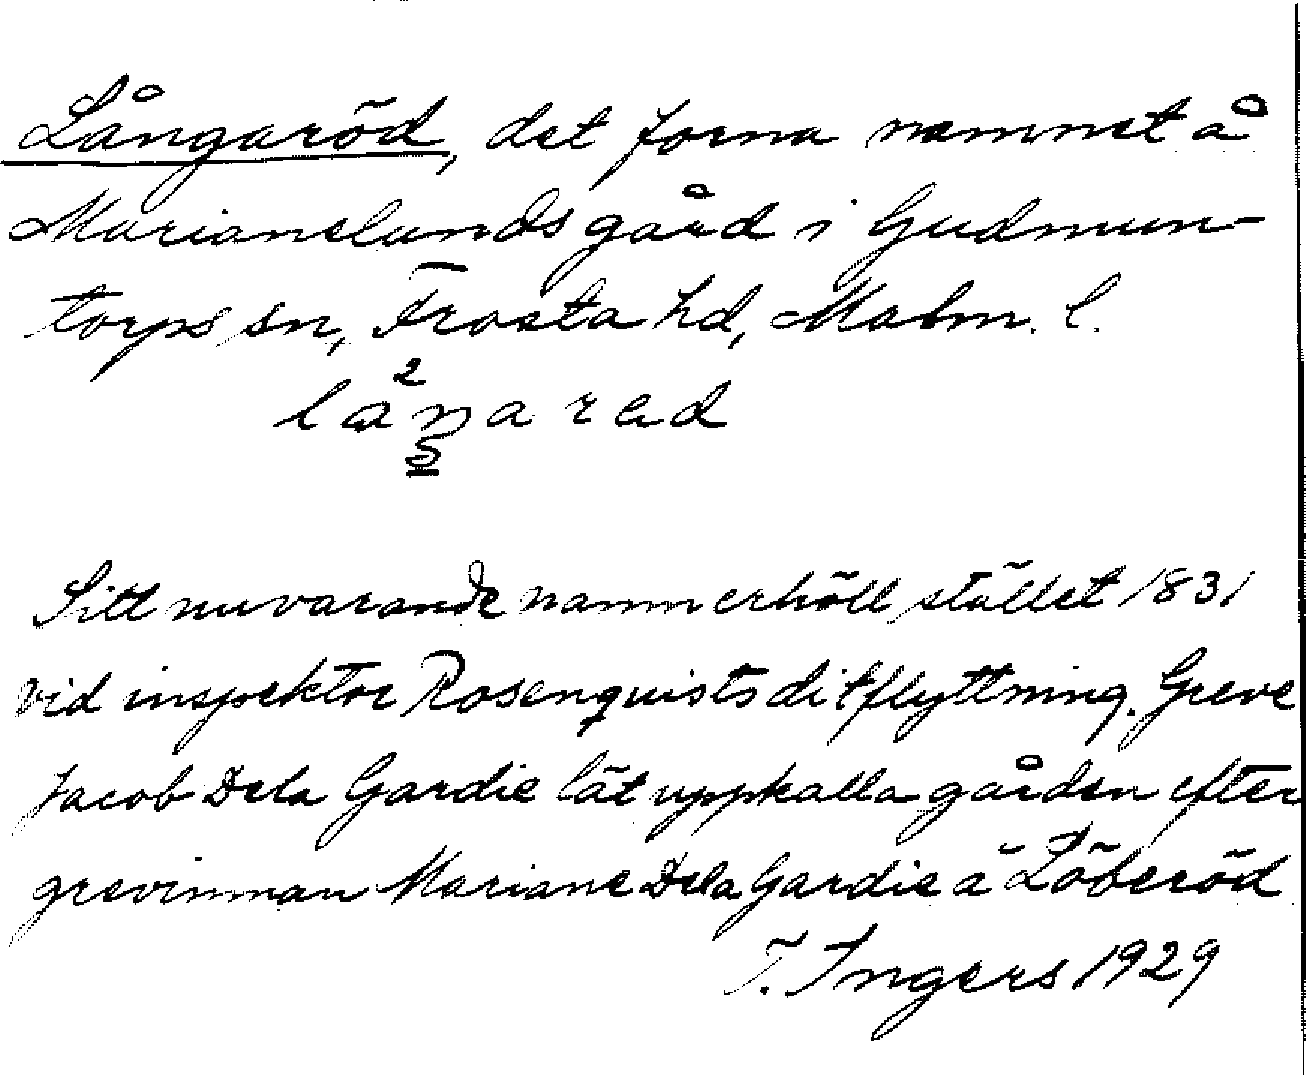 Långaröd, det forna namnet å
Marianelunds gård i Gudmun-
torps sn, Frosta hd, Malm. l.
Sitt nuvarande namn erhöll stället 1831
vid inspektor Rosenquists ditflyttning. Greve
Jacob De la Gardie lät uppkalla gården efter
grevinnan Mariane De la Gardie å Löberöd
T. Ingers 1929